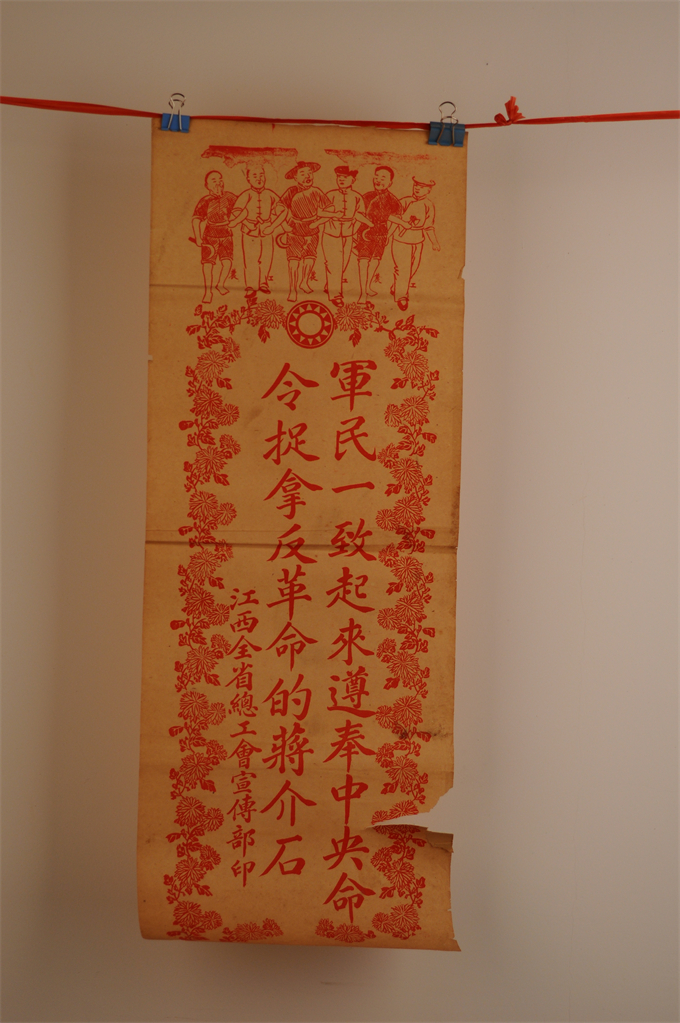 農 工 農 工 農 工
軍民一致起來遵奉中央命
令捉拿反革命的蔣介石
江西全省總工會宣傳部印